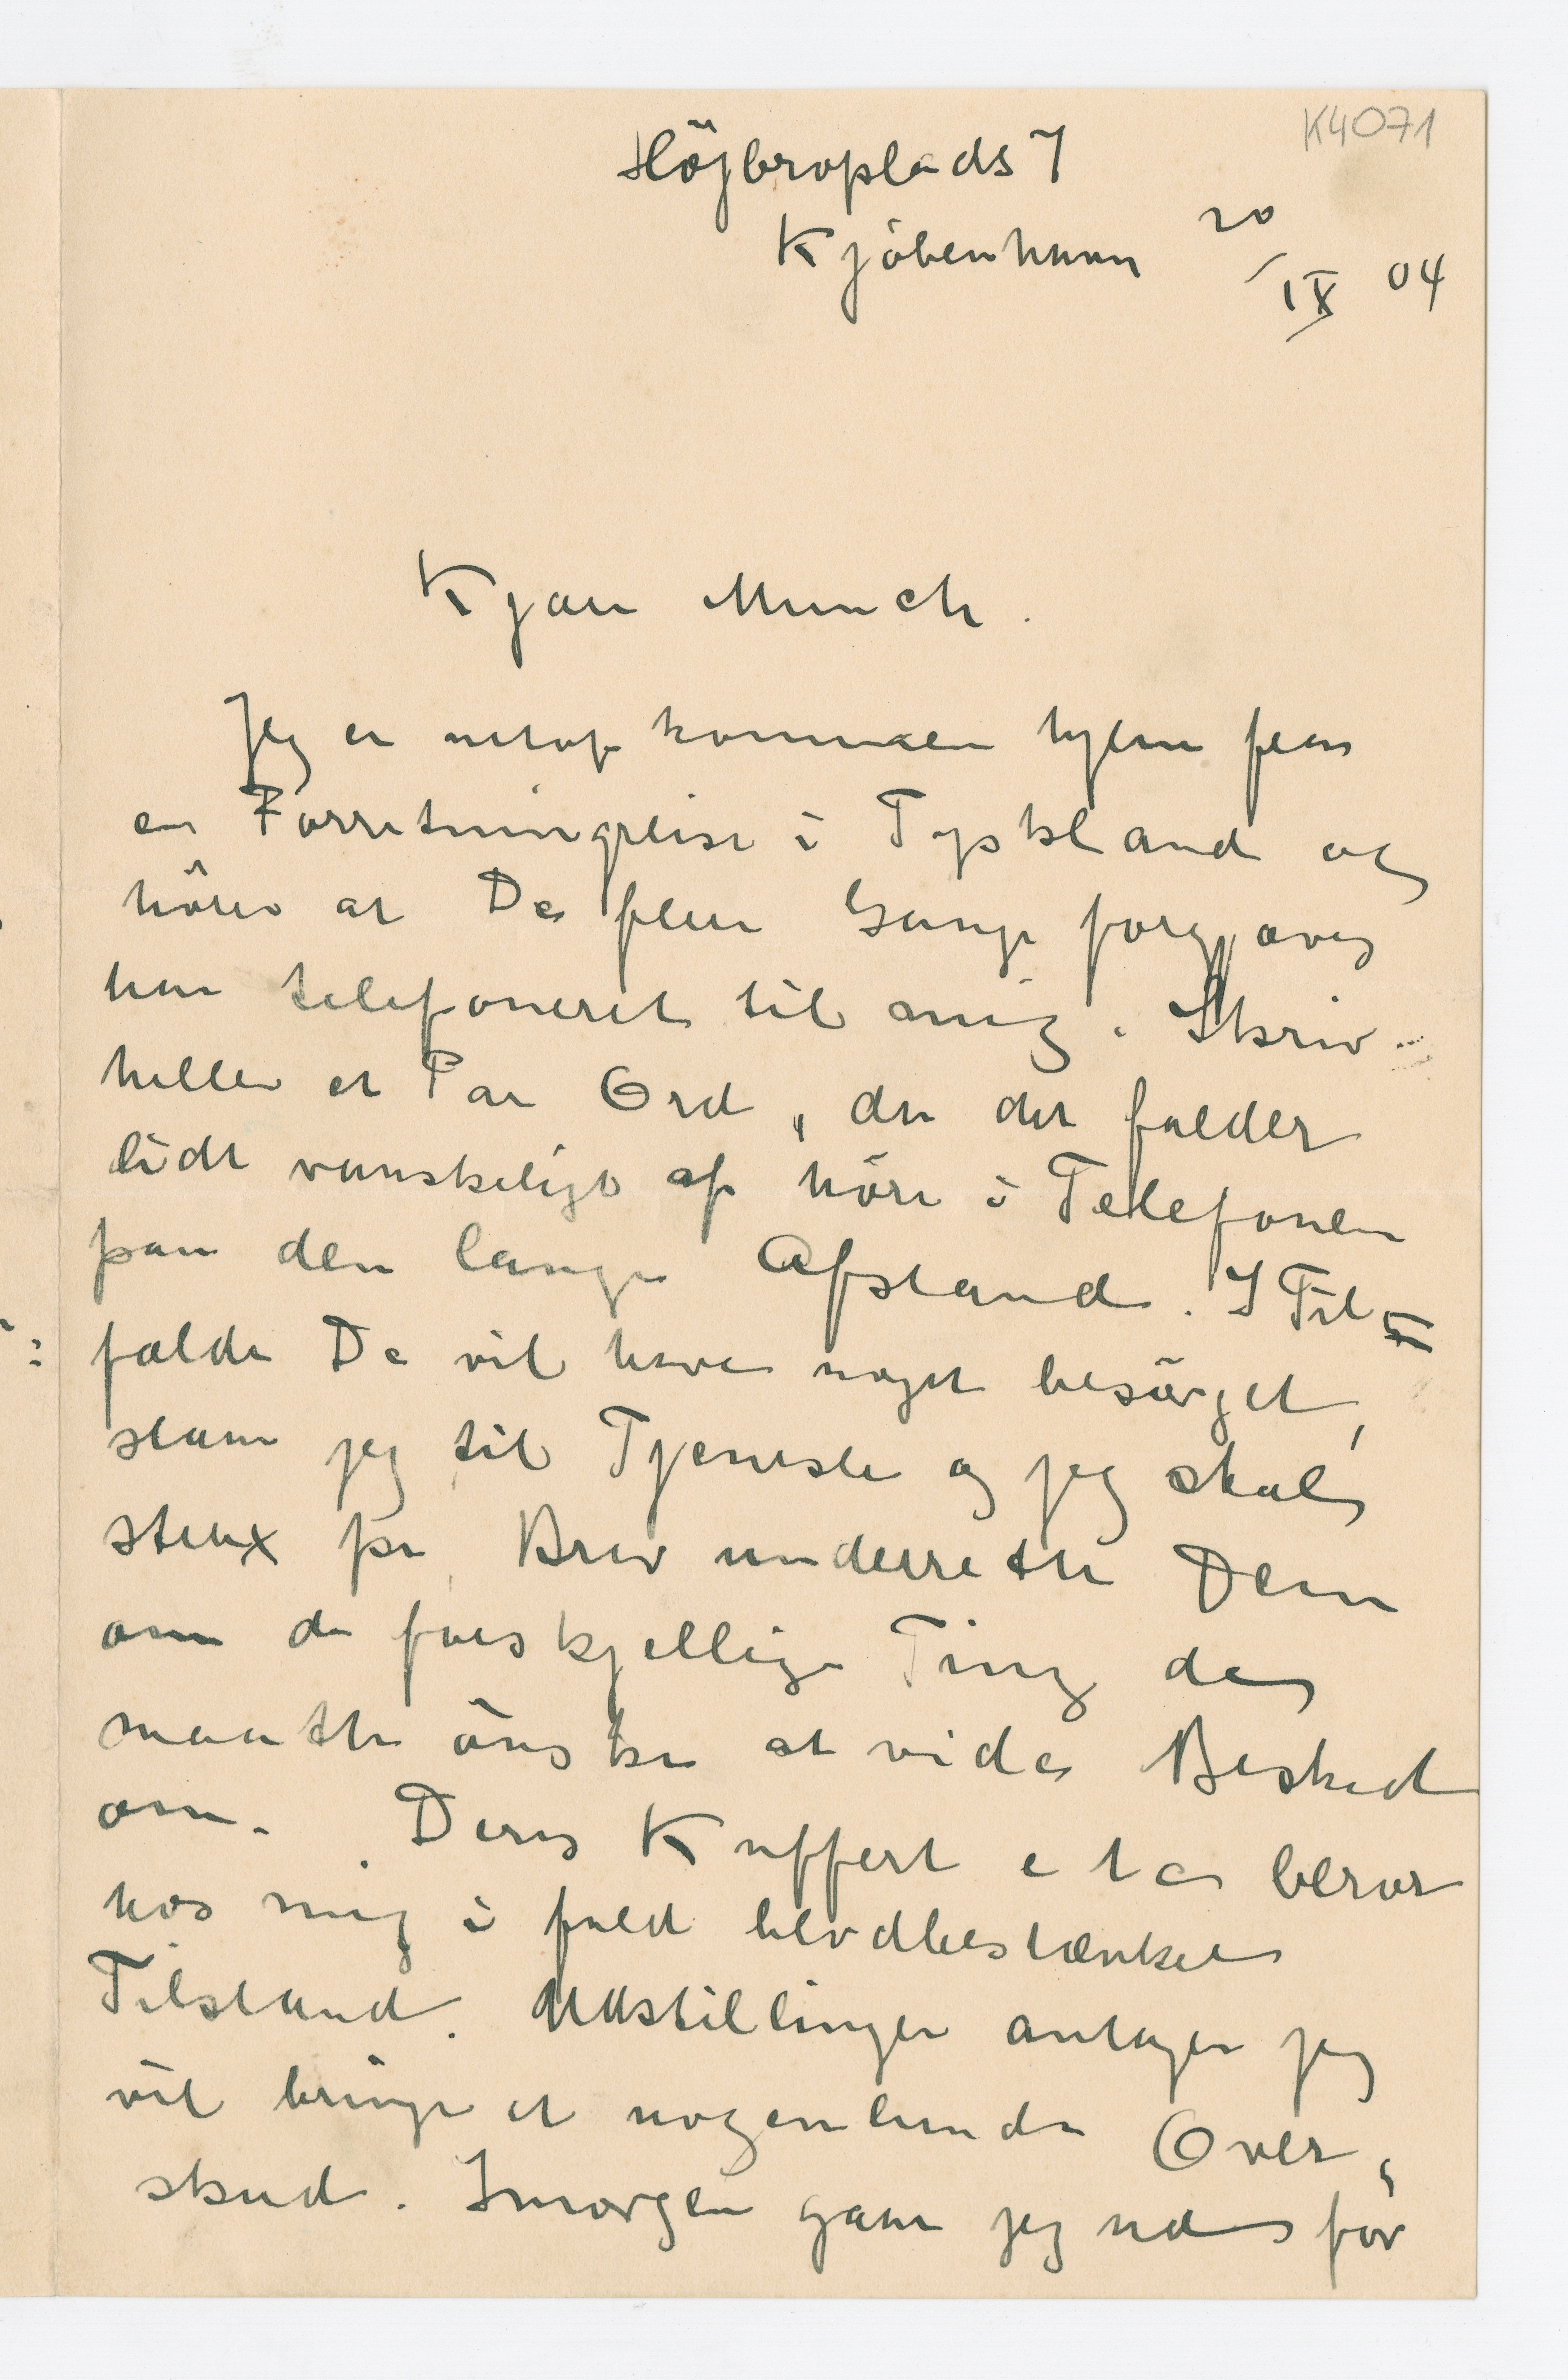 K4071
Höjbroplads 7
Kjöbenhavn 20/IX 04
Kjære Munch.
Jeg er netop kommen hjem fra
en Forretningreise i Tyskland og
hörer at De flere Gange forgjæves
har telefoneret til mig. Skriv
heller et Par Ord, da det falder
lidt vanskeligt at höre i Telefonen
paa den lange Afstand. I Til=
fælde De vil have noget besörget,
staar jeg til Tjeneste og jeg skal
strax pr Brev underrette Dem
om de forskjellige Ting de
maatte önske at vide Besked
om. Deres Kuffert etc beror
hos mig i fuld blodbestænket
Tilstand. Udstillingen antager jeg
vil bringe et nogenlunde Over,
skud. Imorgen gaar jeg ud for